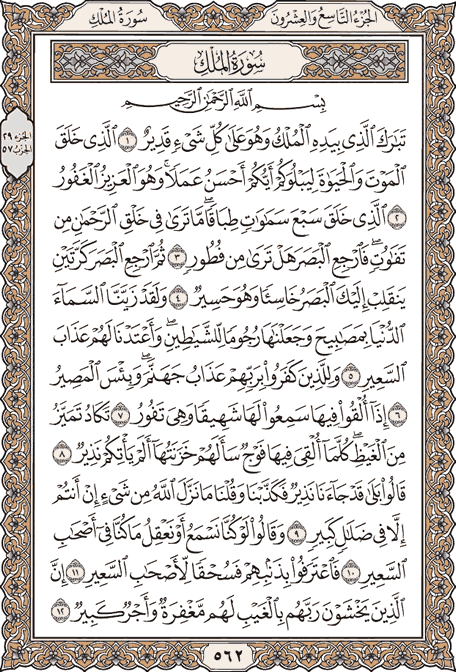 الجزء التاسع والعشرون
سورة الملك
سُورَةُ المُلْكِ
الجزء ٢٩
الحزب ٥٧
بِسْمِ اللَّهِ الرَّحْمَٰنِ الرَّحِيمِ
تَبَٰرَكَ ٱلَّذِى بِيَدِهِ ٱلْمُلْكُ وَهُوَ عَلَىٰ كُلِّ شَىْءٍ قَدِيرٌ ١ ٱلَّذِى خَلَقَ
ٱلْمَوْتَ وَٱلْحَيَوٰةَ لِيَبْلُوَكُمْ أَيُّكُمْ أَحْسَنُ عَمَلًا ۚ وَهُوَ ٱلْعَزِيزُ ٱلْغَفُورُ
٢ ٱلَّذِى خَلَقَ سَبْعَ سَمَٰوَٰتٍ طِبَاقًا ۖ مَّا تَرَىٰ فِى خَلْقِ ٱلرَّحْمَٰنِ مِن
تَفَٰوُتٍ ۖ فَٱرْجِعِ ٱلْبَصَرَ هَلْ تَرَىٰ مِن فُطُورٍ ٣ ثُمَّ ٱرْجِعِ ٱلْبَصَرَ كَرَّتَيْنِ
يَنقَلِبْ إِلَيْكَ ٱلْبَصَرُ خَاسِئًا وَهُوَ حَسِيرٌ ٤ وَلَقَدْ زَيَّنَّا ٱلسَّمَآءَ
ٱلدُّنْيَا بِمَصَٰبِيحَ وَجَعَلْنَٰهَا رُجُومًا لِّلشَّيَٰطِينِ ۖ وَأَعْتَدْنَا لَهُمْ عَذَابَ
ٱلسَّعِيرِ ٥ وَلِلَّذِينَ كَفَرُوا۟ بِرَبِّهِمْ عَذَابُ جَهَنَّمَ ۖ وَبِئْسَ ٱلْمَصِيرُ
٦ إِذَآ أُلْقُوا۟ فِيهَا سَمِعُوا۟ لَهَا شَهِيقًا وَهِىَ تَفُورُ ٧ تَكَادُ تَمَيَّزُ
مِنَ ٱلْغَيْظِ ۖ كُلَّمَآ أُلْقِىَ فِيهَا فَوْجٌ سَأَلَهُمْ خَزَنَتُهَآ أَلَمْ يَأْتِكُمْ نَذِيرٌ ٨
قَالُوا۟ بَلَىٰ قَدْ جَآءَنَا نَذِيرٌ فَكَذَّبْنَا وَقُلْنَا مَا نَزَّلَ ٱللَّهُ مِن شَىْءٍ إِنْ أَنتُمْ
إِلَّا فِى ضَلَٰلٍ كَبِيرٍ ٩ وَقَالُوا۟ لَوْ كُنَّا نَسْمَعُ أَوْ نَعْقِلُ مَا كُنَّا فِىٓ أَصْحَٰبِ
ٱلسَّعِيرِ ١٠ فَٱعْتَرَفُوا۟ بِذَنۢبِهِمْ فَسُحْقًا لِّأَصْحَٰبِ ٱلسَّعِيرِ ١١ إِنَّ
ٱلَّذِينَ يَخْشَوْنَ رَبَّهُم بِٱلْغَيْبِ لَهُم مَّغْفِرَةٌ وَأَجْرٌ كَبِيرٌ ١٢
٥٦٢